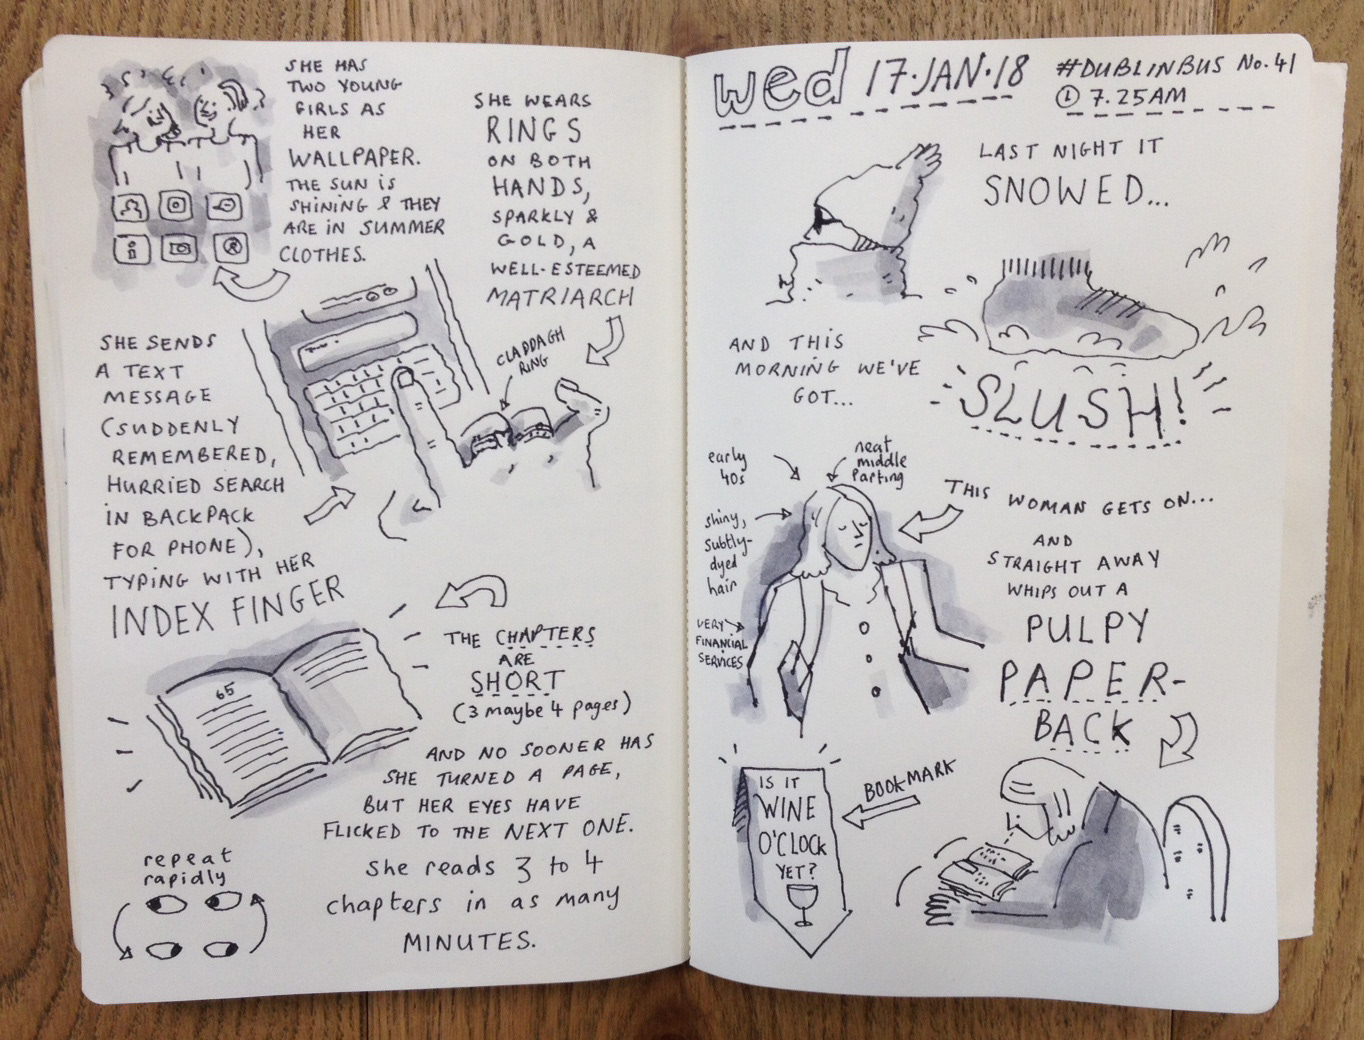 SHE HAS
TWO YOUNG
GIRLS AS
HER
WALLPAPER.
THE SUN IS
SHINING & THEY
ARE IN SUMMER
CLOTHES.
SHE WEARS
RINGS
ON BOTH
HANDS,
SPARKLY &
GOLD, A
WELL-ESTEEMED
MATRIARCH
CLADDAGH
RING
SHE SENDS
A TEXT
MESSAGE
(SUDDENLY
REMEMBERED,
HURRIED SEARCH
IN BACKPACK
FOR PHONE),
TYPING WITH HER
INDEX FINGER
65
THE CHAPTERS
ARE
SHORT
(3 maybe 4 pages)
AND NO SOONER HAS
SHE TURNED A PAGE,
BUT HER EYES HAVE
FLICKED TO THE NEXT ONE.
She reads 3 to 4
chapters in as many
MINUTES.
repeat
rapidly
wed 17·JAN·18
#DUBLINBUS No. 41
7.25AM
LAST NIGHT IT
SNOWED...
AND THIS
MORNING WE'VE
GOT...
SLUSH!
early
40s
neat
middle
parting
shiny,
subtly-
dyed
hair
VERY
FINANCIAL
SERVICES
THIS WOMAN GETS ON...
AND
STRAIGHT AWAY
WHIPS OUT A
PULPY
PAPER-
BACK
IS IT
WINE
O'CLOCK
YET?
BOOKMARK